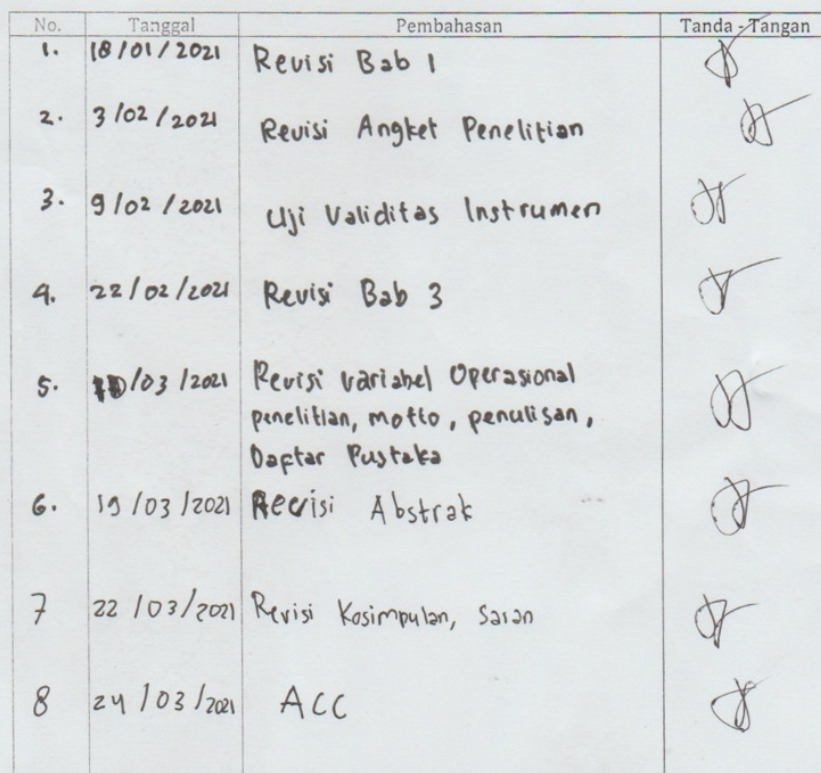 No. Tanggal Pembahasan Tanda - Tangan
1. 18/01/2021 Revisi Bab 1
2. 3/02/2021 Revisi Angket Penelitian
3. 9/02/2021 Uji Validitas Instrumen
4. 22/02/2021 Revisi Bab 3
5. /03/2021 Revisi Variabel Operasional
penelitian, motto, penulisan,
Daftar Pustaka
6. 19/03/2021 Revisi Abstrak
7 22/03/2021 Revisi Kosimpulan, Saran
8 24/03/2021 ACC